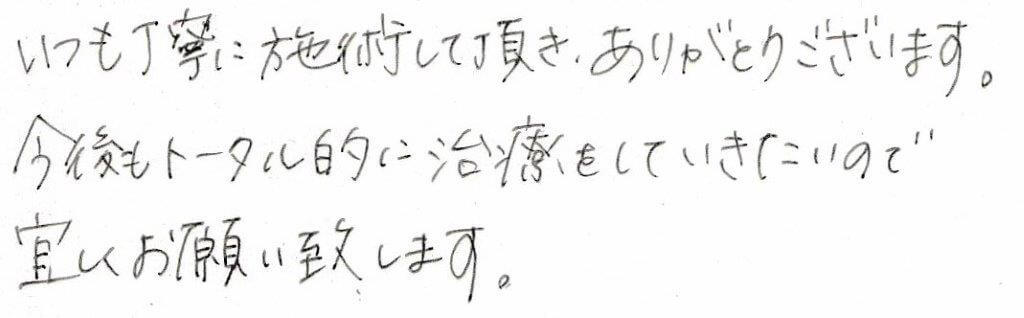 いつも丁寧に施術して頂き、ありがとうございます。
今後もトータル的に治療をしていきたいので
宜しくお願い致します。